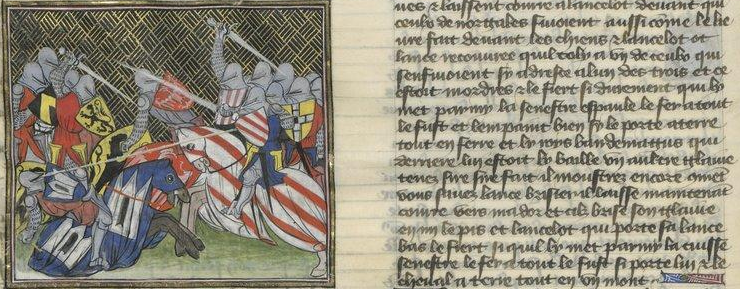 nes & laissent courre a lancelot devant qui
ceulx de norgales fuioient aussi come le lie
vre fait devant les chiens & lancelot ot
lance recouvree quil toly a vn de ceulx qui
senfuioient sy adrese a lun des trois et ce
estoit mordres & le fiert si durement qui ly
met parmy la senestre espaule le fer a tout
le fust et lempaint bien sy le porte a terre
tout en ferre et ly roys bandemattus qui
derriere luy estoit ly baille vn aultre glaive
tenez sire sire fait il moustrez encore comet
vous savez lance brisier il laisse maintenāt
courre vers mador et cilz brise son glaive
en my le pis et lancelot qui porte sa lance
bas le fiert si quil ly met parmy la cuisse
senestre le fer a tout le fust si porte luy & le
cheval a terre tout en vn mont